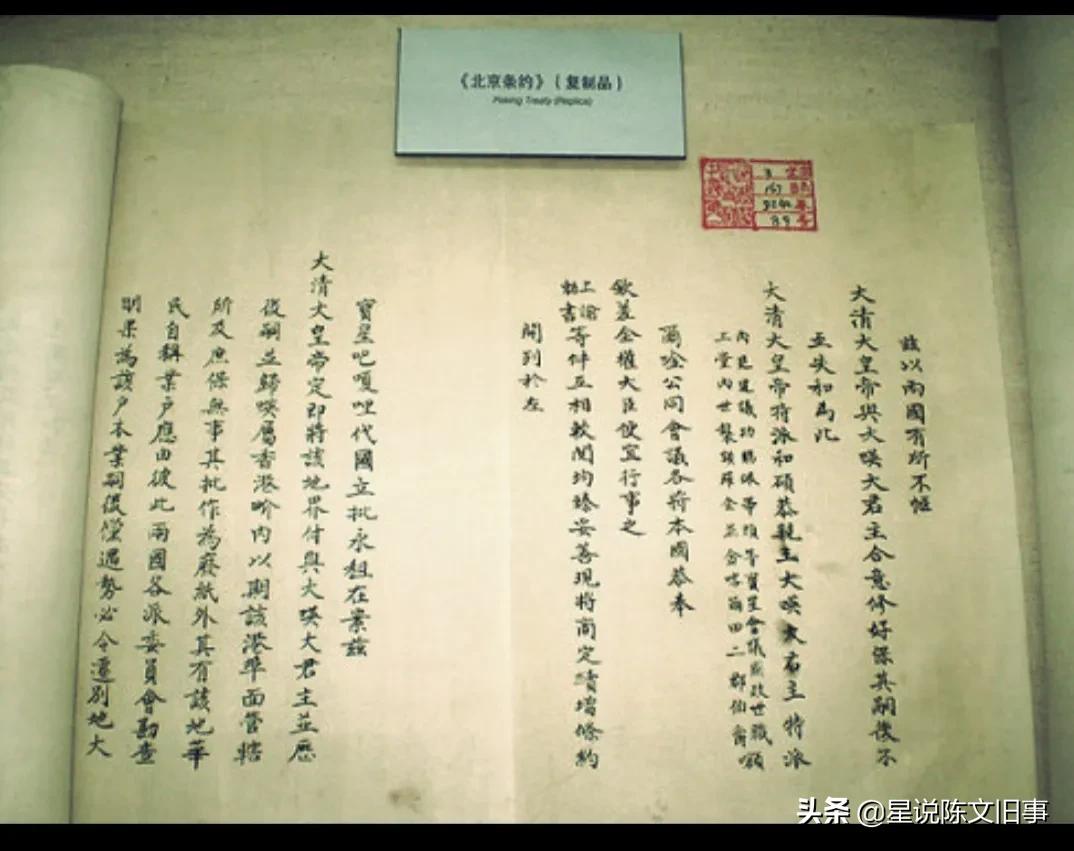 《北京条约》(复制品)
Peking Treaty (Replica)
茲以兩國有所不愜
大清大皇帝與大嘆大君主合意修好保其嗣後不
互失和為此
大清大皇帝特派和碩恭親王大嘆大君主特派
內
爾唫公同會議各將本國恭奉
欽差全權大臣便宜行事之
上諭
敕書等件互相較閱均臻妥善現將商定續增條約
開列於左
寶星巴嗄哩代國立批永租在案茲
大清大皇帝定即將該地界付與大嘆大君主並歷
後嗣並歸嘆屬香港界內以期該港埠面管轄
所及庶保無事其批作為廢紙外其有該地華
民自稱業戶應由彼此兩國各派委員會勘查
明果為該戶本業嗣後儻遇勢必令遷別地大
头条 @星说陈文旧事